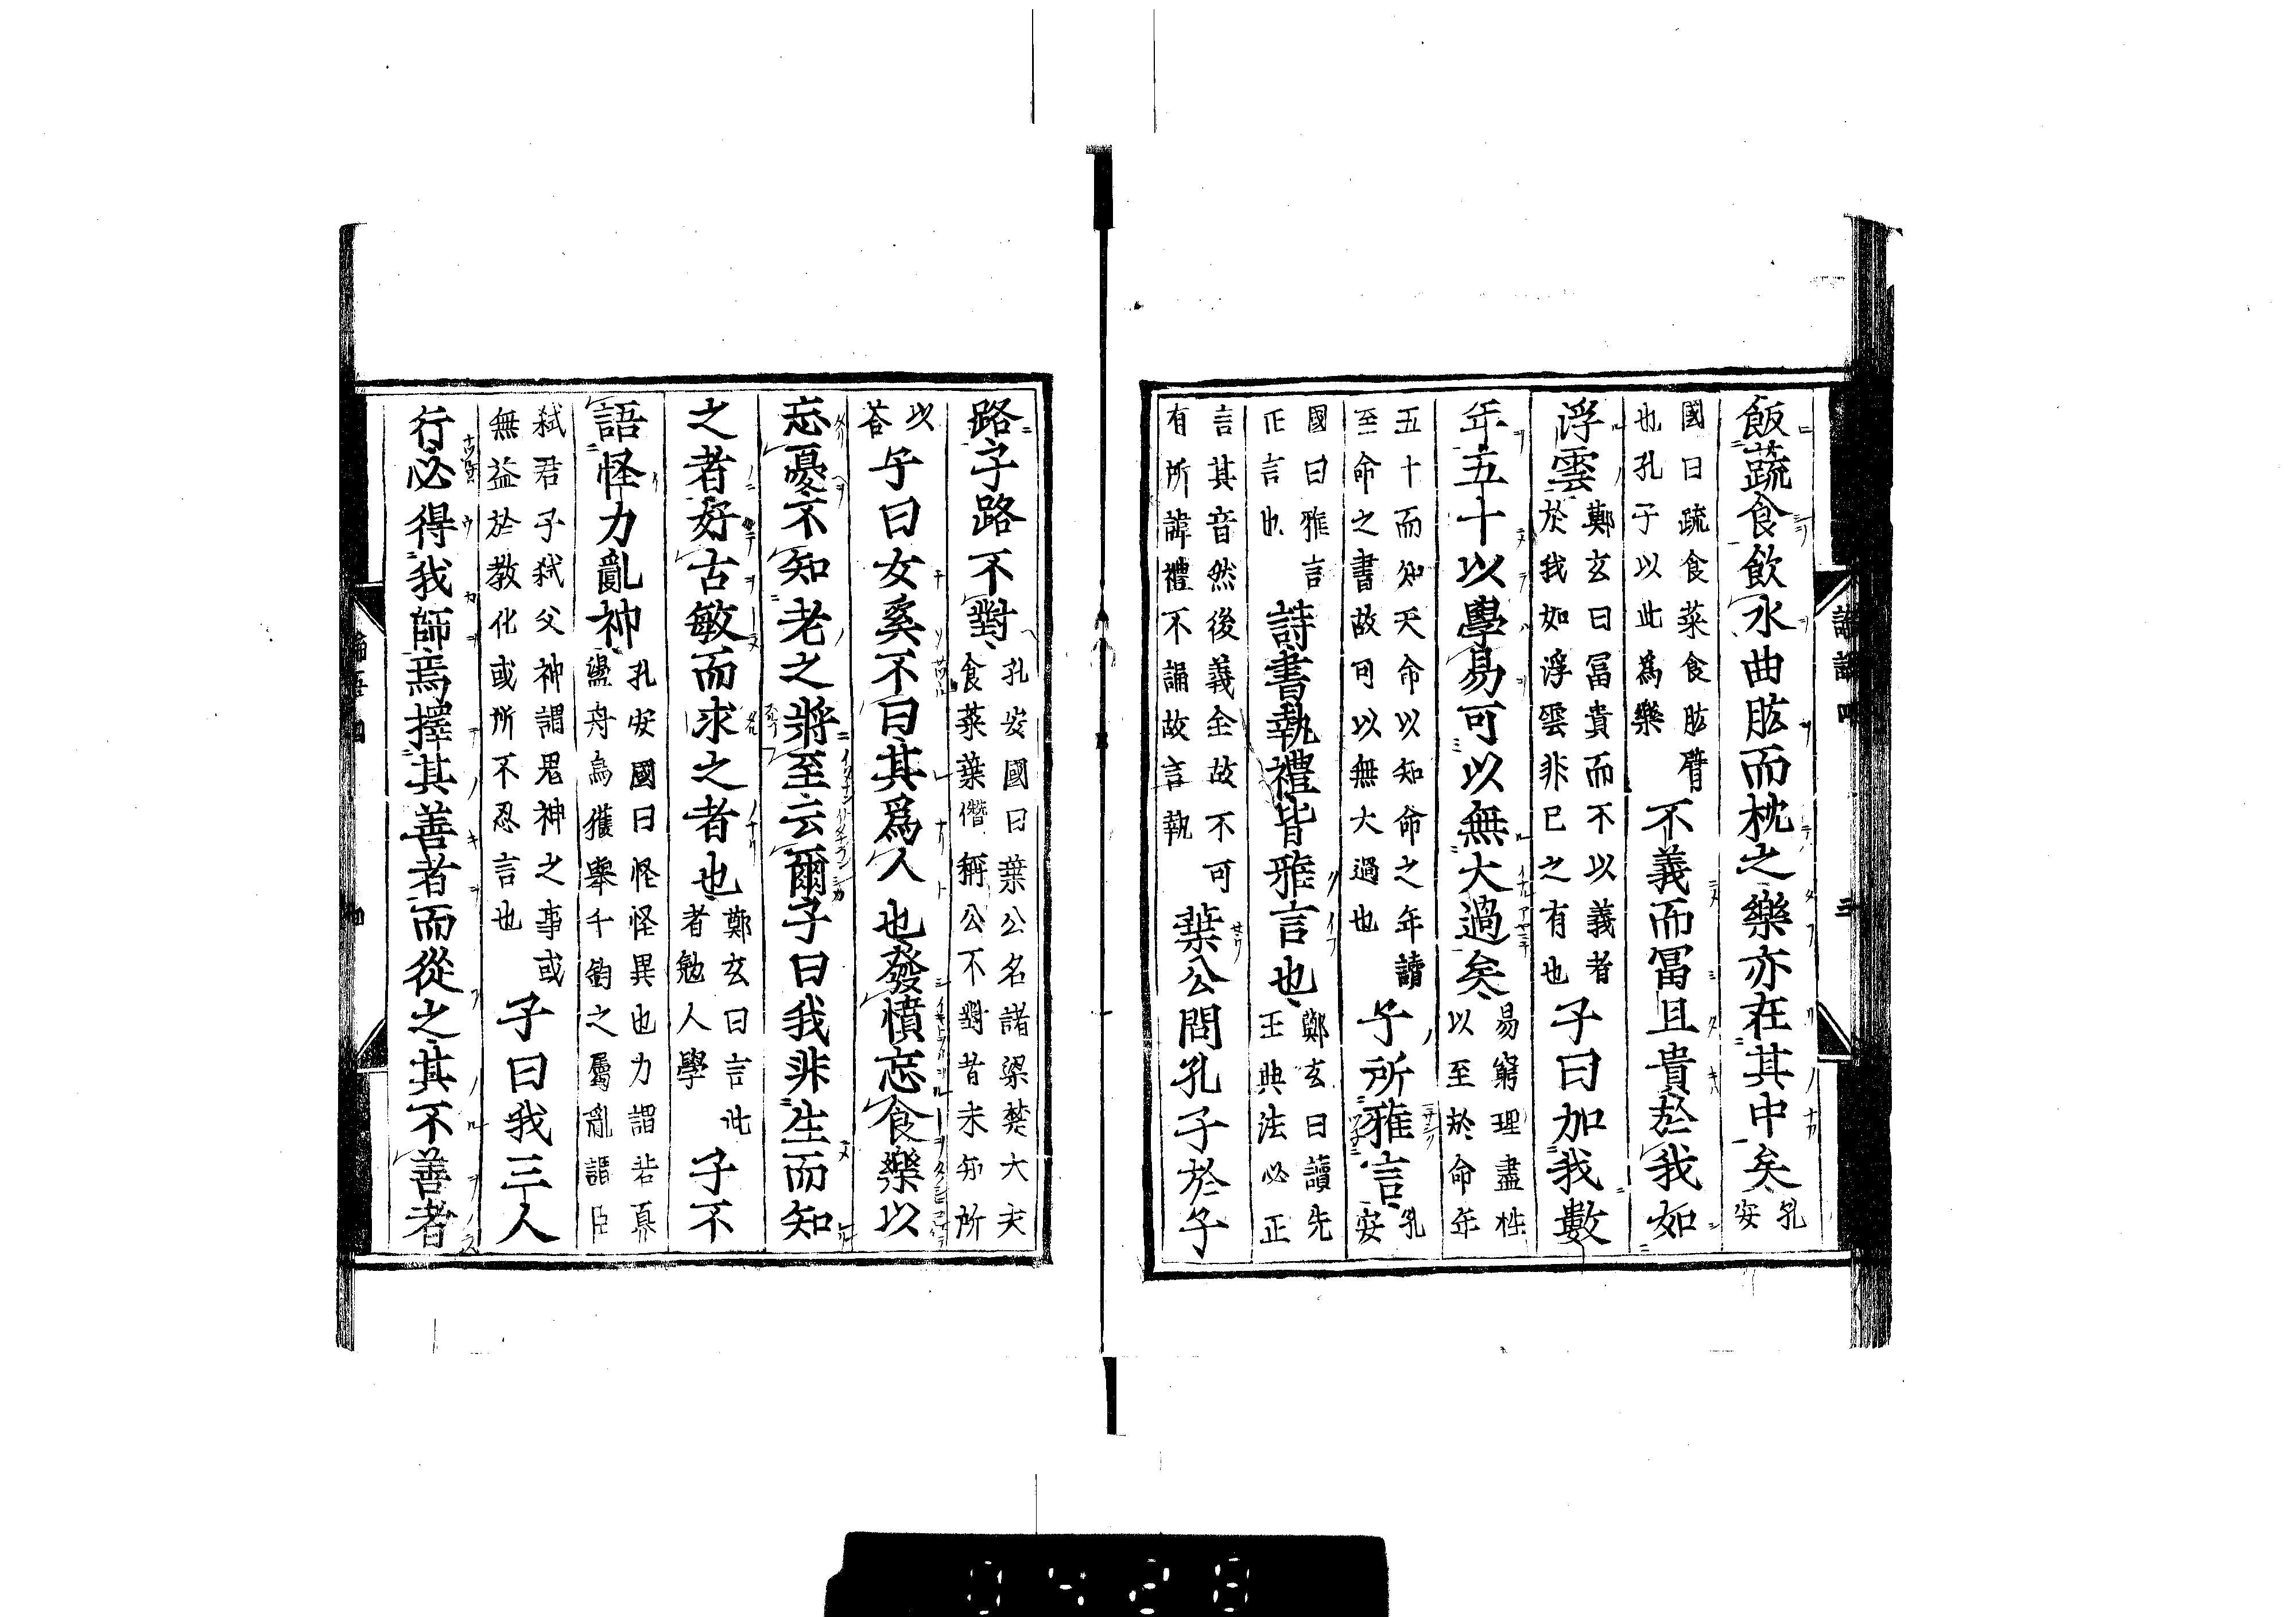 飯蔬食飲水曲肱而枕之樂亦在其中矣孔安
國曰疏食菜食肱臂也孔子以此為樂不義而冨且貴於我如
浮雲鄭玄曰冨貴而不以義者於我如浮雲非已之有也子曰加我數
年五十以學易可以無大過矣易窮理盡性以至於命年
五十而知天命以知命之年讀至命之書故可以無大過也子所雅言孔安
國曰雅言正言也詩書執禮皆雅言也鄭玄曰讀先王典法必正
言其音然後義全故不可有所諱禮不誦故言執葉公問孔子於子
路子路不對孔安國曰葉公名諸梁楚大夫食菜葉僭稱公不對者未知所
以荅子曰女奚不曰其爲人也發憤忘食樂以
忘憂不知老之將至云爾子曰我非生而知
之者好古敏而求之者也鄭玄曰言此者勉人學子不
語怪力亂神孔安國曰怪怪異也力謂若奡盪舟烏獲舉千鈞之屬亂謂臣
弑君子弑父神謂鬼神之事或無益於教化或所不忍言也子曰我三人
行必得我師焉擇其善者而從之其不善者
論語四
三
0428